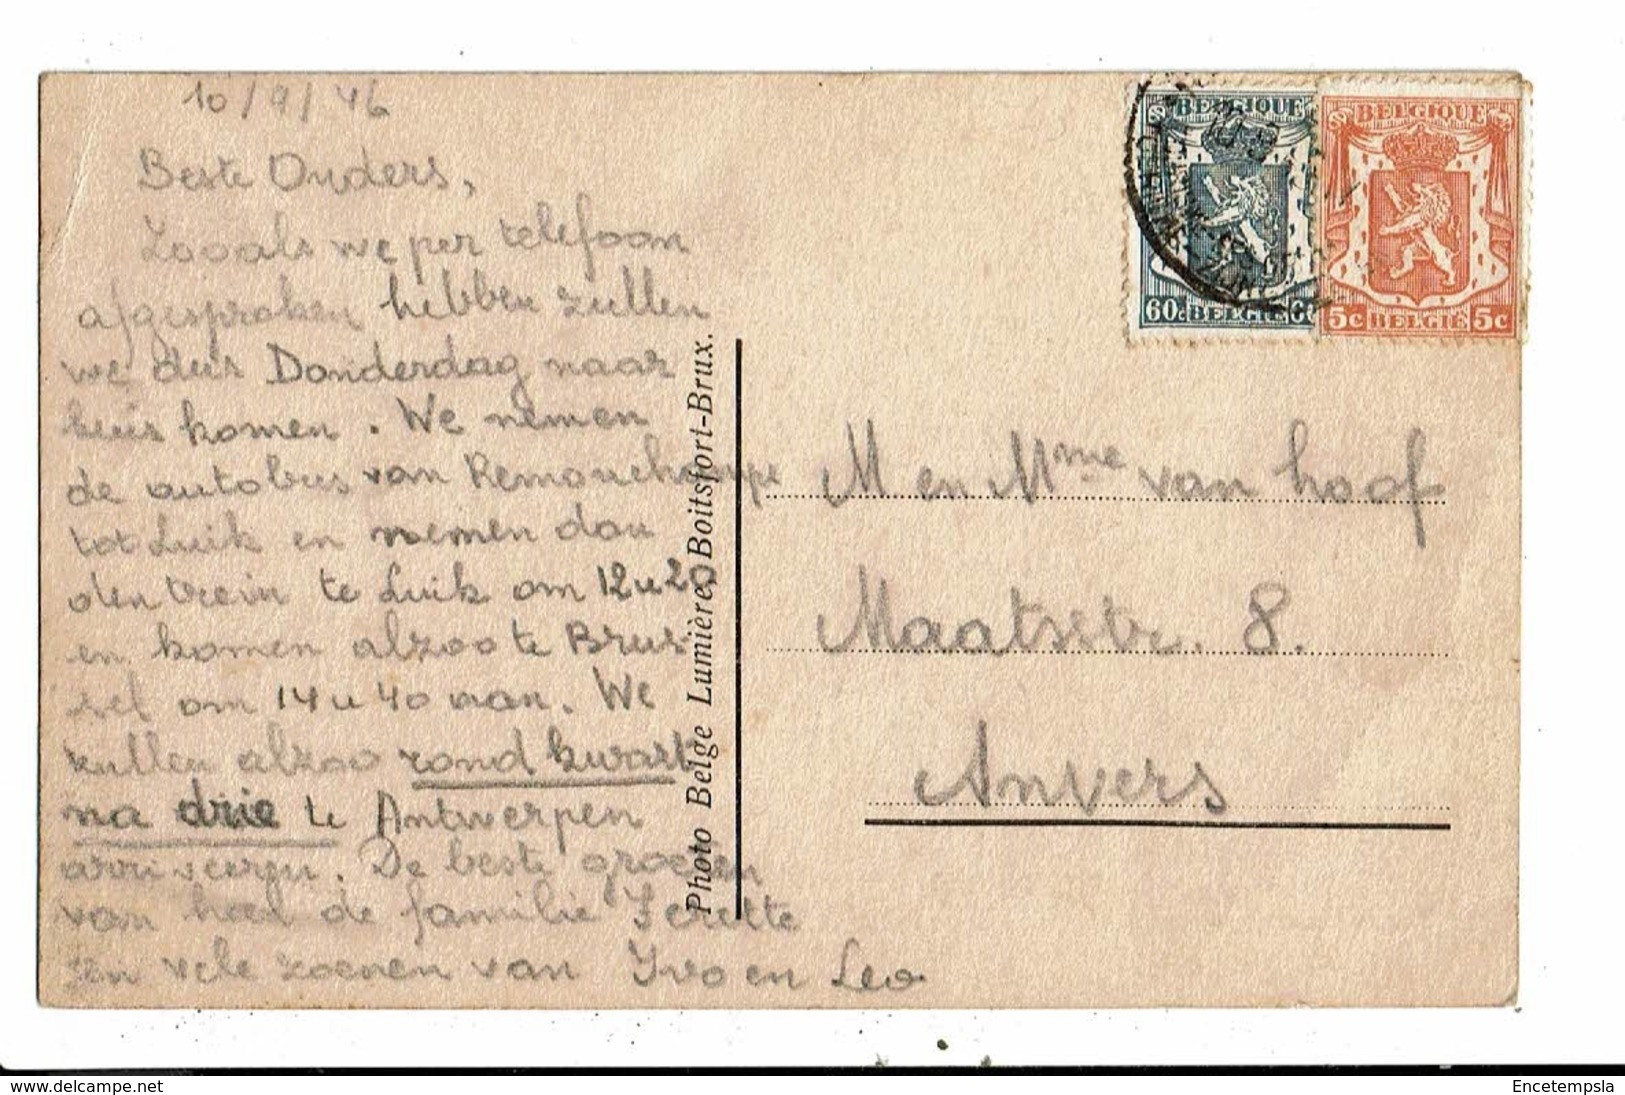 10/9/46
Beste Ouders,
Zooals we per telefoon
afgesproken hebben zullen
we dus Donderdag naar
huis komen. We nemen
de autobus van Remouchamps
tot Luik en nemen dan
den trein te Luik om 12u20
en komen alzoo te Brus-
sel om 14u40 aan. We
zullen alzoo rond kwart
na drie te Antwerpen
arriveeren. De beste groeten
van heel de familie
en vele zoenen van Yvo en Leo
Photo Belge Lumière, Boitsfort-Brux.
BELGIQUE
60c BELGIE 60
BELGIQUE
5c BELGIE 5c
M en Mme van hoof
Maatstr. 8.
Anvers
Encetempsla
www.delcampe.net